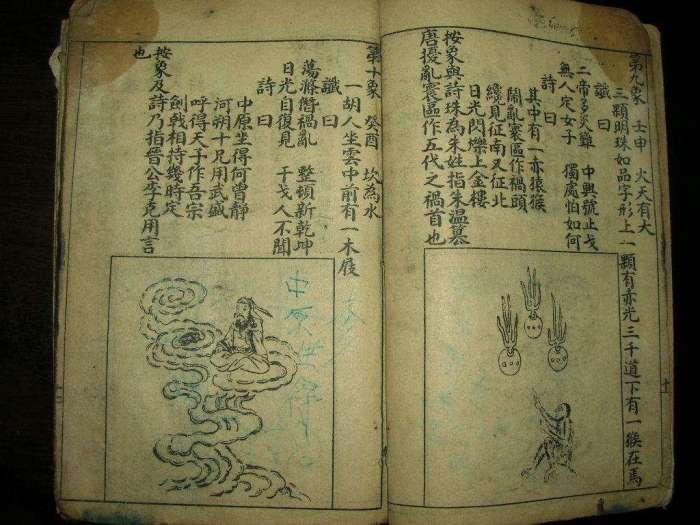 第九象 壬申 火天有大
三顆明珠如品字形上一顆有亦光三千道下有一猴在馬
讖曰
二帝多災難 中興號止戈
無人定女子 獨處怕如何
詩曰
其中有一亦猿猴
鬧亂寰區作禍頭
纔見征南又征北
日光閃爍上金樓
按象與詩珠為朱姓指朱溫篡
唐擾亂寰區作五代之禍首也
第十象 癸酉 坎為水
一胡人坐雲中前有一木屐
讖曰
蕩滌僭禍亂 整頓新乾坤
日光自復見 干戈人不聞
詩曰
中原坐得何曾靜
河朔十兄用武盛
呼得天子作吾宗
劍戟相持幾時定
按象及詩乃指晉公李克用言
也
中原